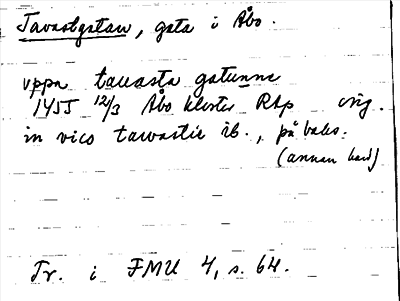 Tavastgatan, gata i Åbo.
uppa tauasta gatunne
1455 12/3 Åbo kloster RAp orig.
in vico tawastie ib., på baks.
(annan hand)
Tr. i FMU 4, s. 64.